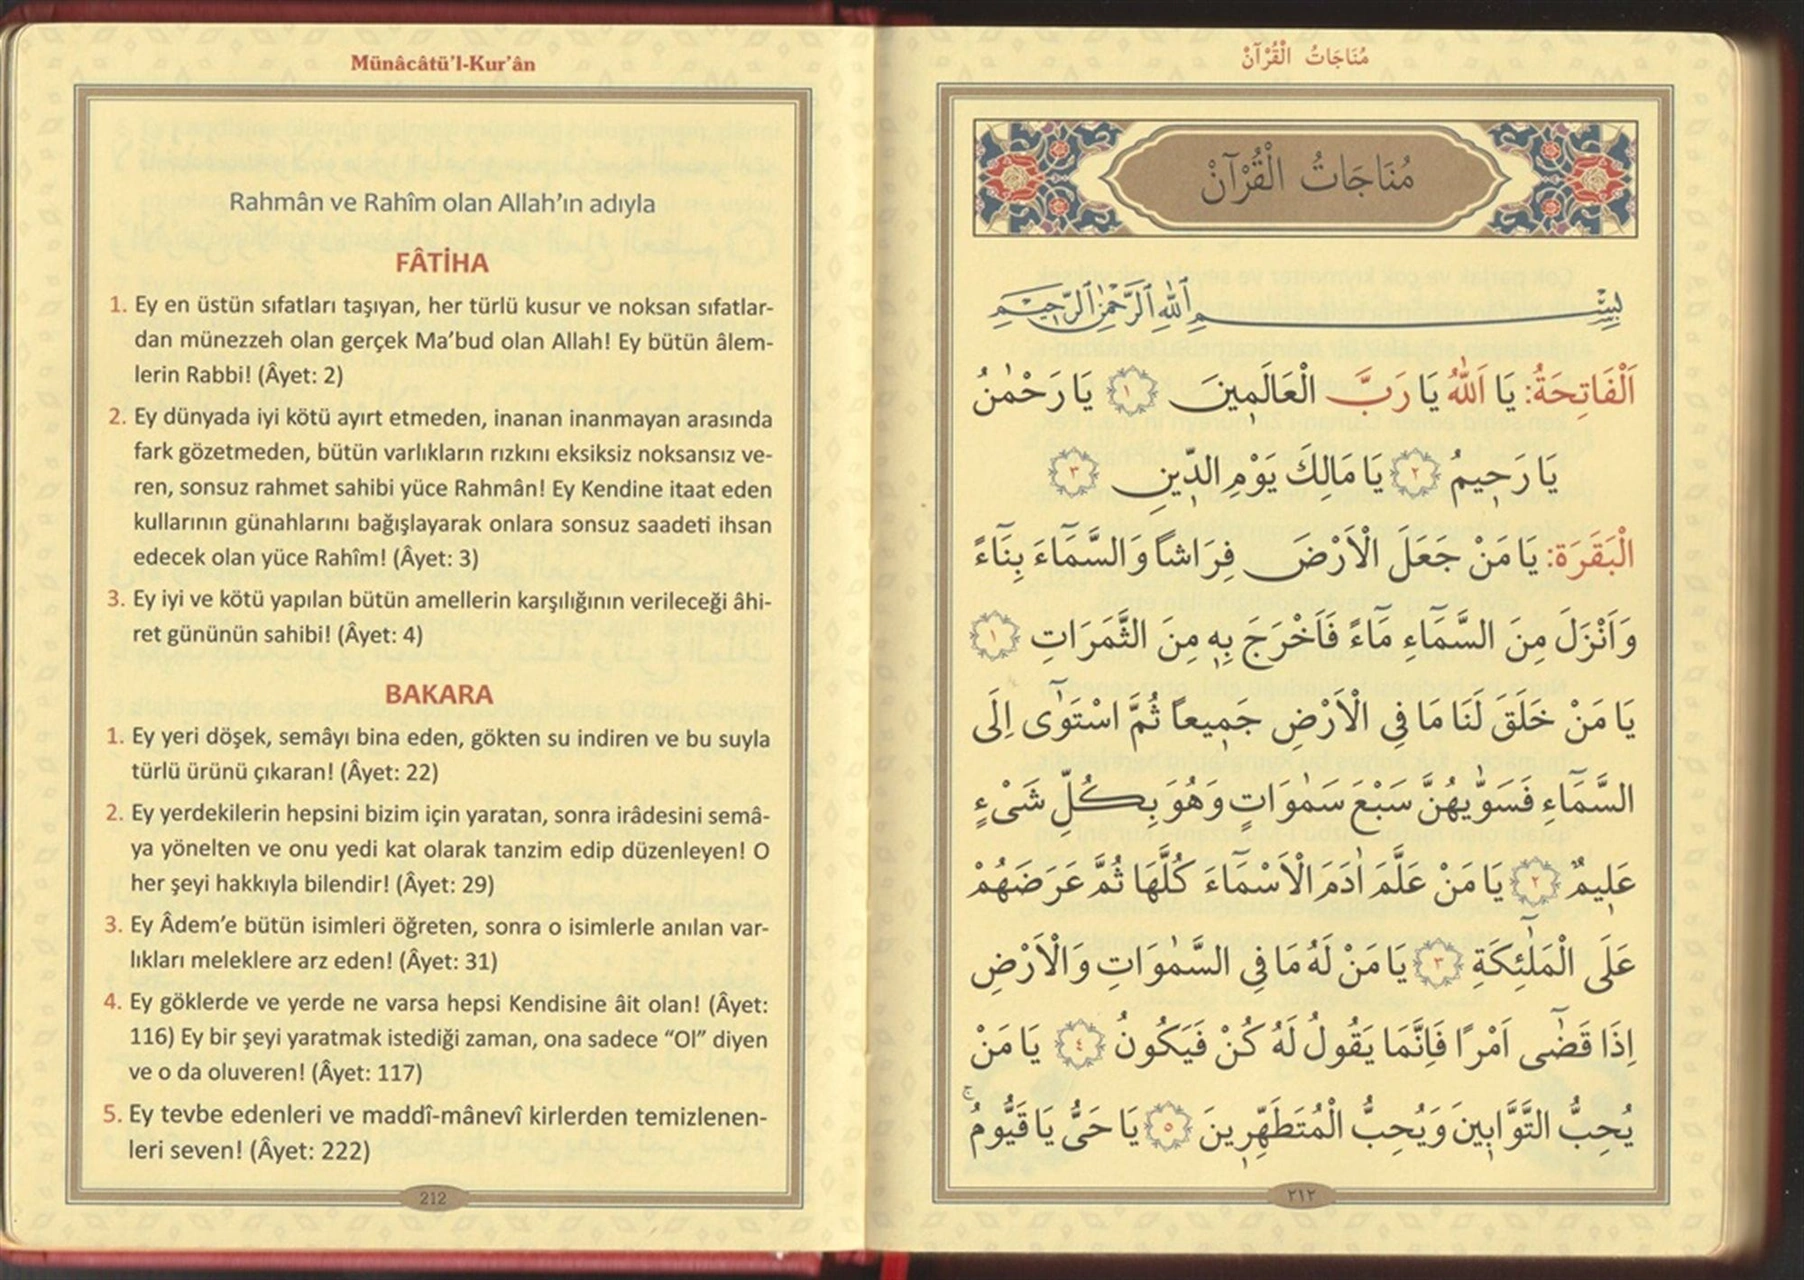 Münâcâtü'l-Kur'ân
Rahmân ve Rahîm olan Allah'ın adıyla
FÂTİHA
1. Ey en üstün sıfatları taşıyan, her türlü kusur ve noksan sıfatlar-
dan münezzeh olan gerçek Ma'bud olan Allah! Ey bütün âlem-
lerin Rabbi! (Âyet: 2)
2. Ey dünyada iyi kötü ayırt etmeden, inanan inanmayan arasında
fark gözetmeden, bütün varlıkların rızkını eksiksiz noksansız ve-
ren, sonsuz rahmet sahibi yüce Rahmân! Ey Kendine itaat eden
kullarının günahlarını bağışlayarak onlara sonsuz saadeti ihsan
edecek olan yüce Rahîm! (Âyet: 3)
3. Ey iyi ve kötü yapılan bütün amellerin karşılığının verileceği âhi-
ret gününün sahibi! (Âyet: 4)
BAKARA
1. Ey yeri döşek, semâyı bina eden, gökten su indiren ve bu suyla
türlü ürünü çıkaran! (Âyet: 22)
2. Ey yerdekilerin hepsini bizim için yaratan, sonra irâdesini semâ-
ya yönelten ve onu yedi kat olarak tanzim edip düzenleyen! O
her şeyi hakkıyla bilendir! (Âyet: 29)
3. Ey Âdem'e bütün isimleri öğreten, sonra o isimlerle anılan var-
lıkları meleklere arz eden! (Âyet: 31)
4. Ey göklerde ve yerde ne varsa hepsi Kendisine âit olan! (Âyet:
116) Ey bir şeyi yaratmak istediği zaman, ona sadece "Ol" diyen
ve o da oluveren! (Âyet: 117)
5. Ey tevbe edenleri ve maddî-mânevî kirlerden temizlenen-
leri seven! (Âyet: 222)
212
مُنَاجَاتُ الْقُرْآنْ
مُنَاجَاتُ الْقُرْآنْ
بِسْمِ اللّٰهِ الرَّحْمٰنِ الرَّحِيمِ
اَلْفَاتِحَةُ: يَا اَللّٰهُ يَا رَبَّ الْعَالَمِينَ ١ يَا رَحْمٰنُ
يَا رَحِيمُ ٢ يَا مَالِكَ يَوْمِ الدِّينِ ٣
الْبَقَرَة: يَا مَنْ جَعَلَ الْاَرْضَ فِرَاشاً وَالسَّمَٓاءَ بِنَٓاءً
وَاَنْزَلَ مِنَ السَّمَٓاءِ مَٓاءً فَاَخْرَجَ بِهِ مِنَ الثَّمَرَاتِ ١
يَا مَنْ خَلَقَ لَنَا مَا فِي الْاَرْضِ جَمِيعاً ثُمَّ اسْتَوٰٓى اِلَى
السَّمَٓاءِ فَسَوّٰيهُنَّ سَبْعَ سَمٰوَاتٍ وَهُوَ بِكُلِّ شَىْءٍ
عَلِيمٌ ٢ يَا مَنْ عَلَّمَ اٰدَمَ الْاَسْمَٓاءَ كُلَّهَا ثُمَّ عَرَضَهُمْ
عَلَى الْمَلٰٓئِكَةِ ٣ يَا مَنْ لَهُ مَا فِي السَّمٰوَاتِ وَالْاَرْضِ
اِذَا قَضٰٓى اَمْرًا فَاِنَّمَا يَقُولُ لَهُ كُنْ فَيَكُونُ ٤ يَا مَنْ
يُحِبُّ التَّوَّابِينَ وَيُحِبُّ الْمُتَطَهِّرِينَ ٥ يَا حَىُّ يَا قَيُّومُ ۚ
٢١٢